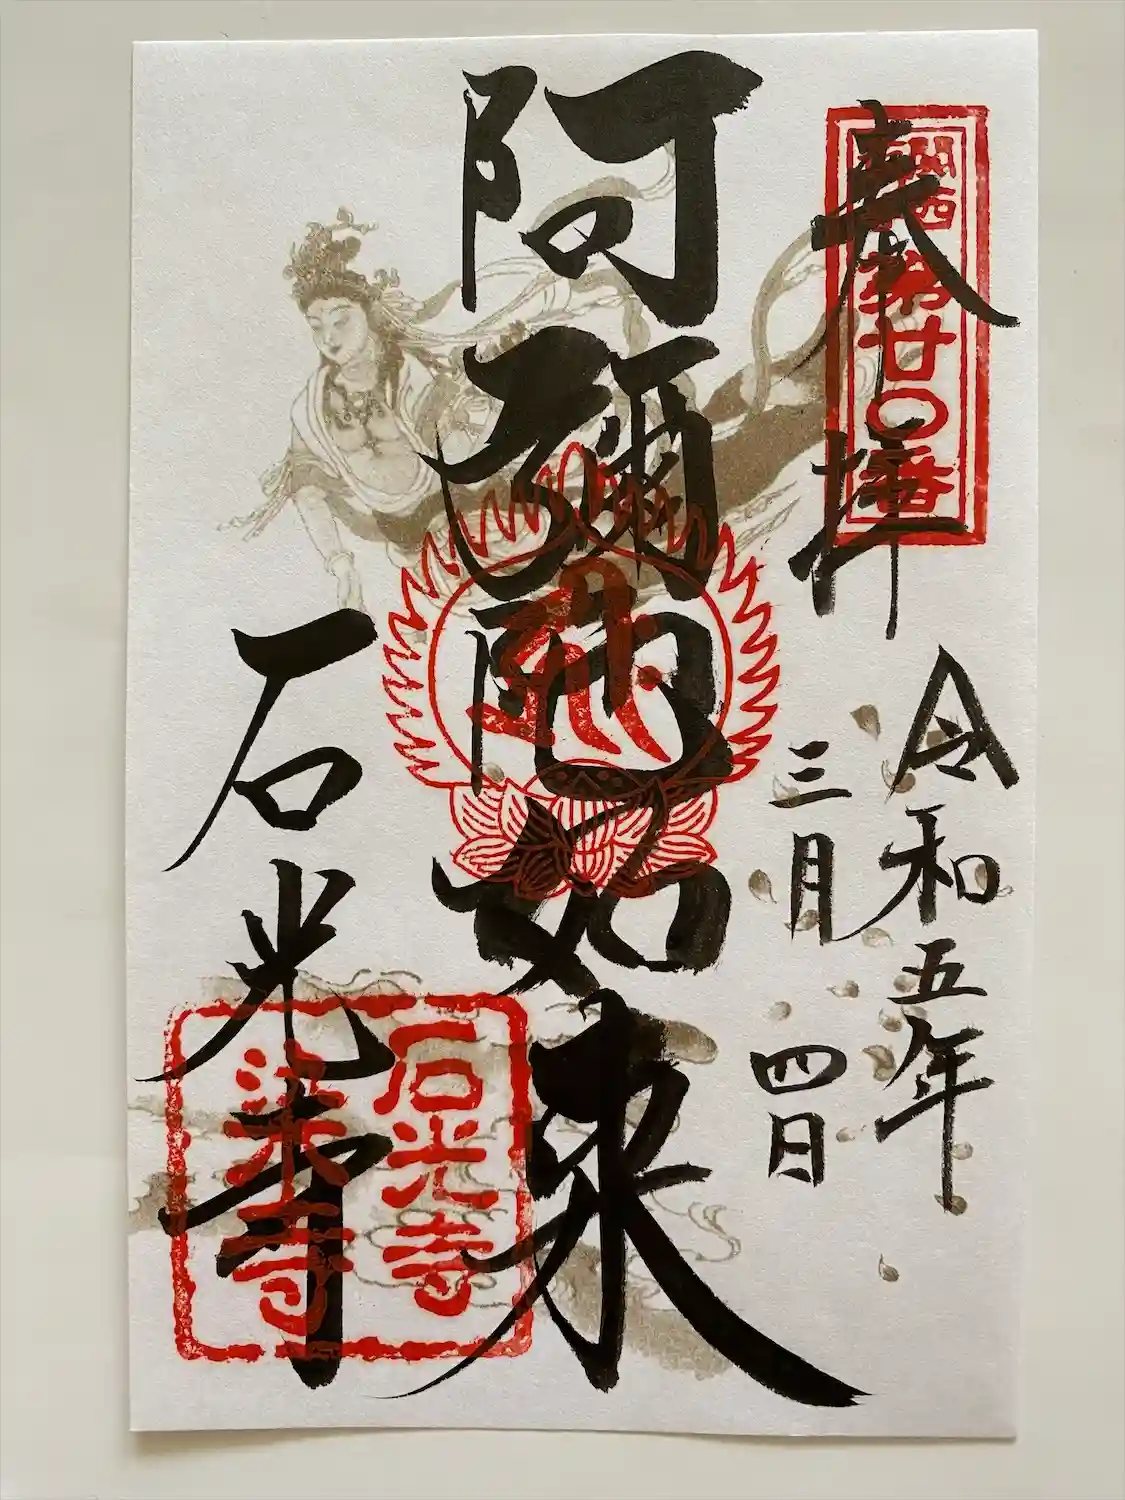 奉拝
関西
第廿〇番
令和五年
三月
四日
阿彌陀如来
石光寺
石光寺
染寺